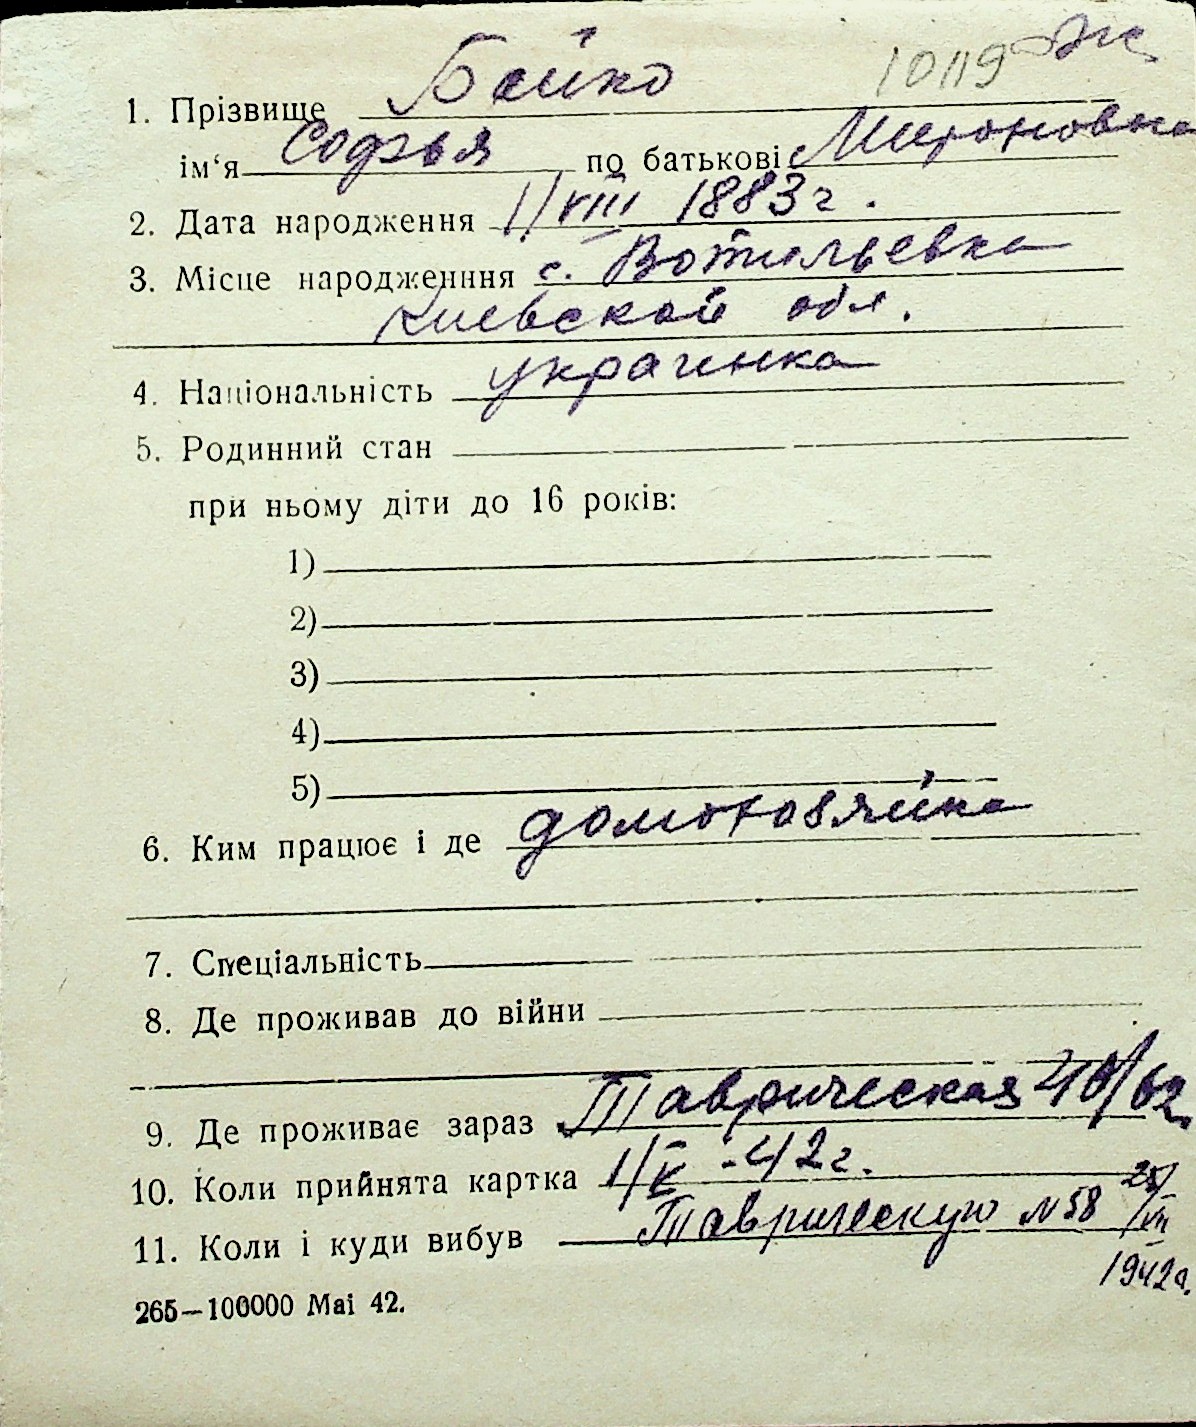 10119 Эк
1. Прізвище Бойко
ім‘я Софья по батькові Мироновна
2. Дата народження 1/VIII 1883 г.
3. Місце народженння с. Вотылевка
Киевской обл.
4. Національність украинка
5. Родинний стан
при ньому діти до 16 років:
1)
2)
3)
4)
5)
6. Ким працює і де домохозяйка
7. Спеціальність
8. Де проживав до війни
9. Де проживає зараз Таврическая 40/62
10. Коли прийнята картка 1/V -42 г.
11. Коли і куди вибув Таврическую №58 25/VII
1942 г.
265—100000 Mai 42.